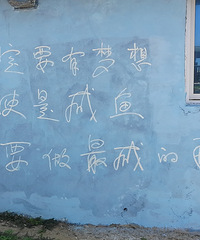 定要有梦想
使是咸鱼
要做最咸的